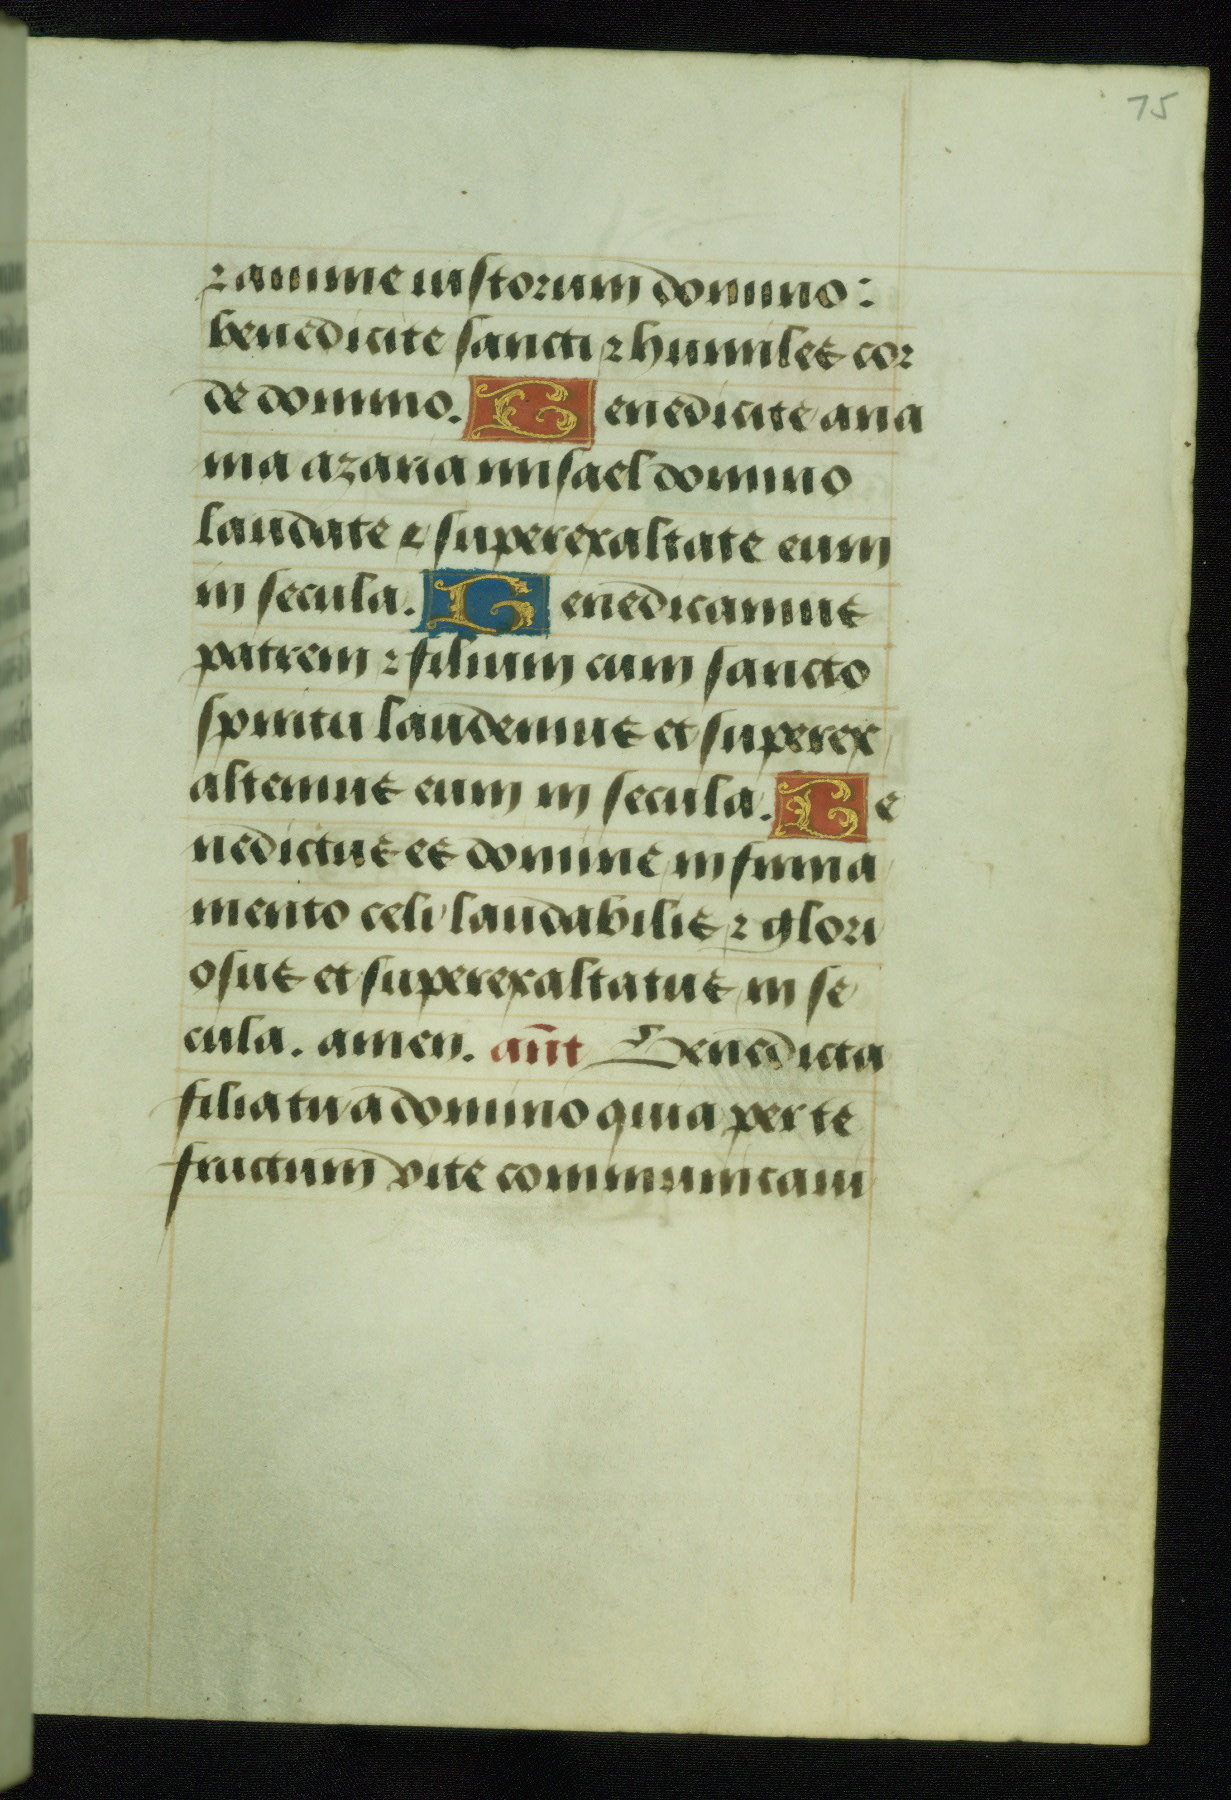 75
⁊ anime iustorum domino:
benedicite sancti ⁊ humiles cor
de domino. Benedicite ana
nia azaria misael domino
laudate ⁊ superexaltate eum
in secula. Benedicamus
patrem ⁊ filium cum sancto
spiritu laudemus et superex
altemus eum in secula. Be
nedictus es domine in firma
mento celi laudabilis ⁊ glori
osus et superexaltatus in se
cula. amen. an̄t Benedicta
filia tu a domino quia per te
fructum vite communicaui